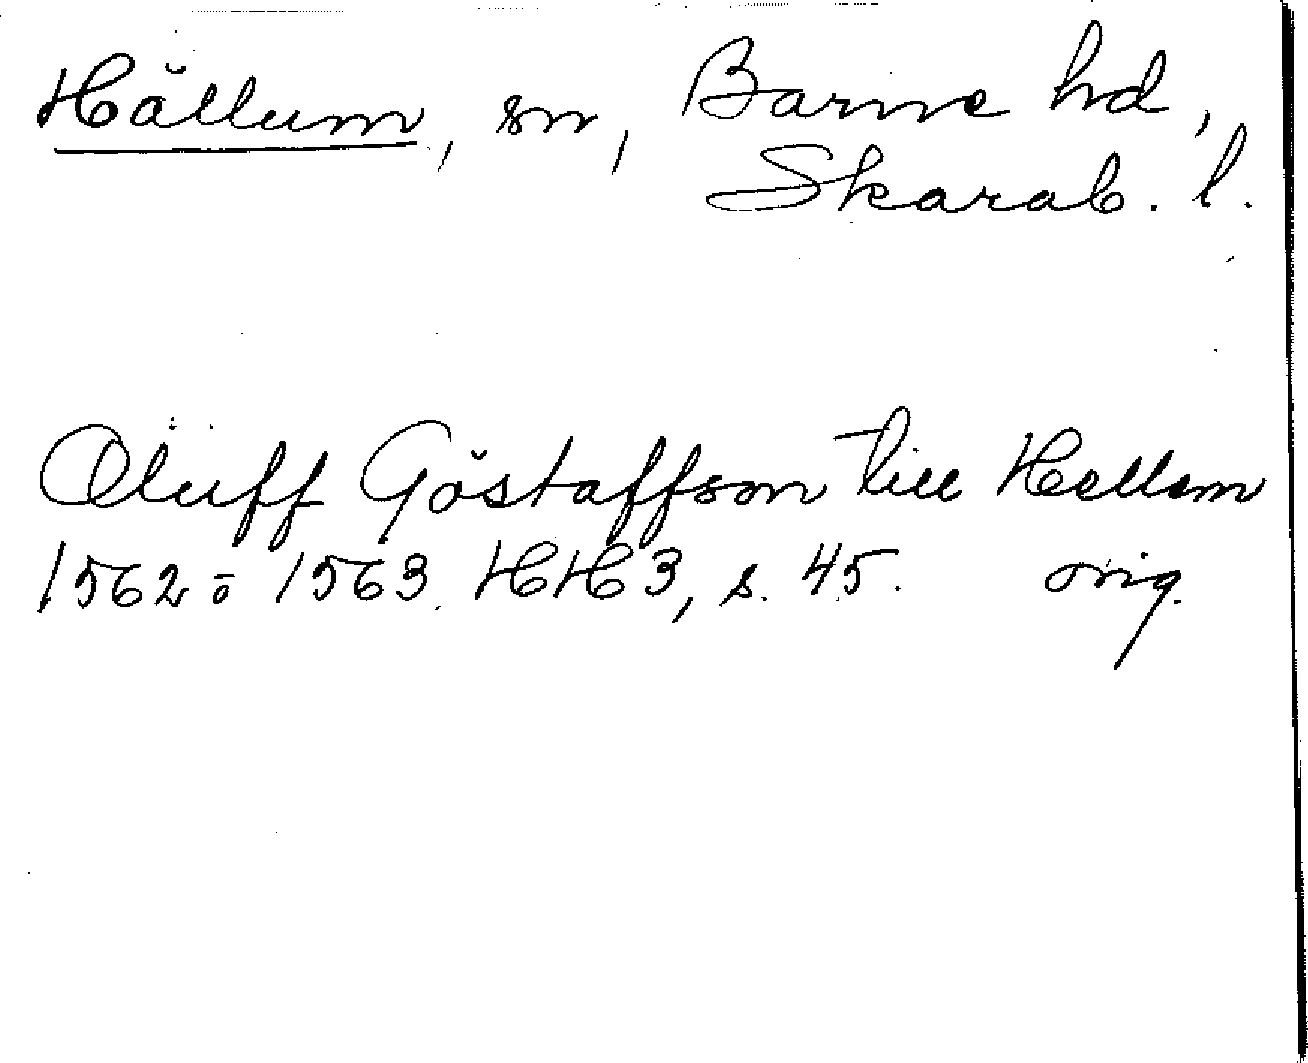 Hällum, sn, Barne hd,
Skarab. l.
Oluff Göstaffson till Hellom
1562 o 1563 HH3, s. 45. orig.